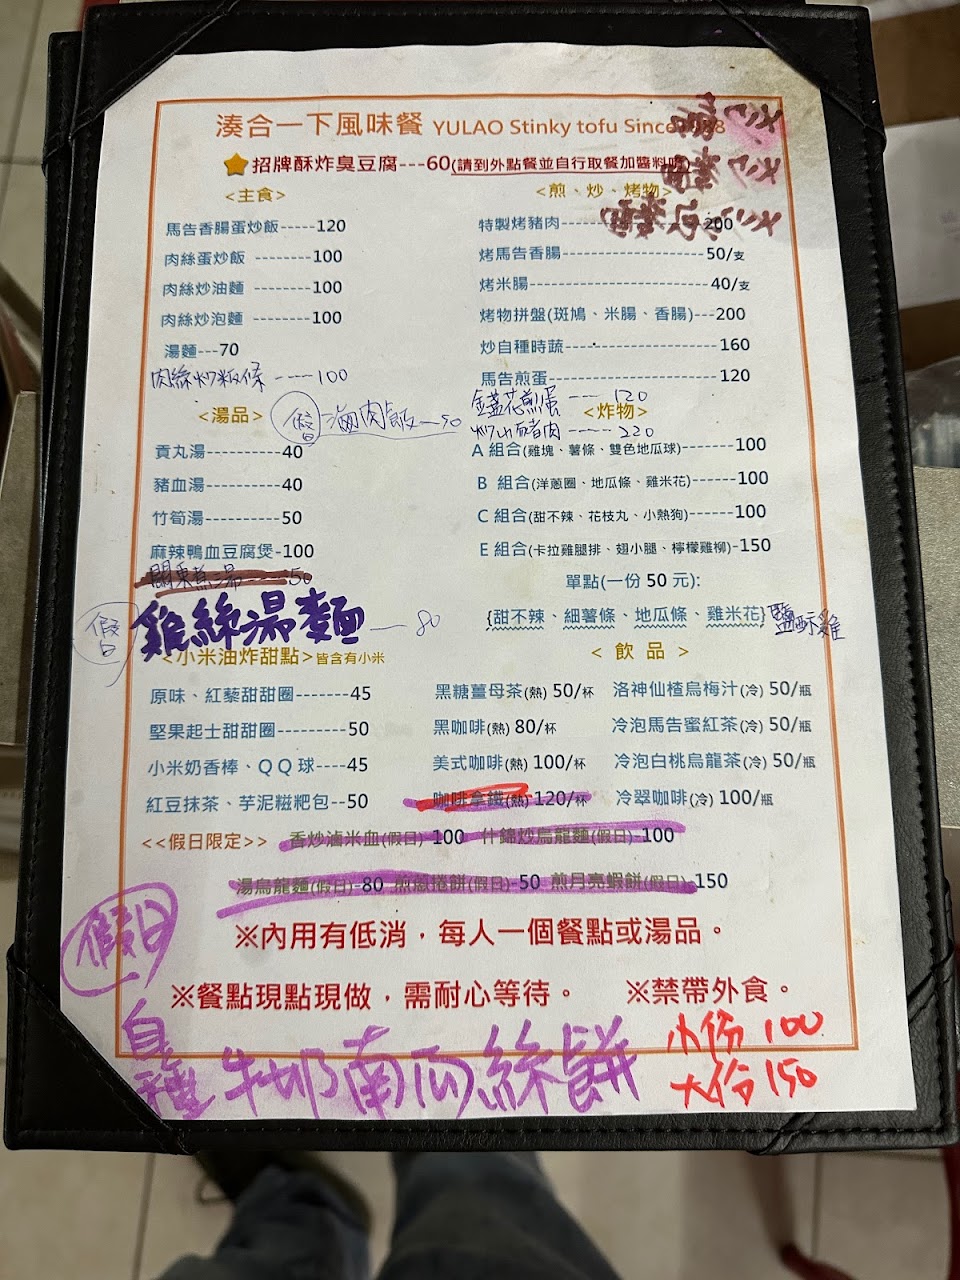 湊合一下風味餐 YULAO Stinky tofu Since
招牌酥炸臭豆腐---60(請到外點餐並自行取餐加醬料喔)
<主食>
馬告香腸蛋炒飯------120
肉絲蛋炒飯 --------100
肉絲炒油麵 --------100
肉絲炒泡麵 --------100
湯麵---70
肉絲炒粄條 ----100
<煎、炒、烤物>
特製烤豬肉--------------------200
烤馬告香腸--------------------50/支
烤米腸--------------------40/支
烤物拼盤(斑鳩、米腸、香腸)---200
炒自種時蔬--------------------160
馬告煎蛋--------------------120
金盞花煎蛋 --- 120
炒山豬肉 ---- 220
<湯品>
假日 滷肉飯 — 50
貢丸湯----------40
豬血湯----------40
竹筍湯----------50
麻辣鴨血豆腐煲-100
關東煮湯----50
假日 雞絲湯麵 — 80
<炸物>
A 組合(雞塊、薯條、雙色地瓜球)------100
B 組合(洋蔥圈、地瓜條、雞米花)------100
C 組合(甜不辣、花枝丸、小熱狗)------100
E 組合(卡拉雞腿排、翅小腿、檸檬雞柳)-150
單點(一份 50 元):
{甜不辣、細薯條、地瓜條、雞米花} 鹽酥雞
<小米油炸甜點>皆含有小米
原味、紅藜甜甜圈-------45
堅果起士甜甜圈---------50
小米奶香棒、QQ球----45
紅豆抹茶、芋泥糍粑包--50
< 飲 品 >
黑糖薑母茶(熱) 50/杯
黑咖啡(熱) 80/杯
美式咖啡(熱) 100/杯
咖啡拿鐵(熱) 120/杯
洛神仙楂烏梅汁(冷) 50/瓶
冷泡馬告蜜紅茶(冷) 50/瓶
冷泡白桃烏龍茶(冷) 50/瓶
冷翠咖啡(冷) 100/瓶
<<假日限定>> 香炒滷米血(假日) 100 什錦炒烏龍麵(假日) 100
湯烏龍麵(假日)-80 煎蔥捲餅(假日)-50 煎月亮蝦餅(假日)-150
※內用有低消，每人一個餐點或湯品。
※餐點現點現做，需耐心等待。 ※禁帶外食。
假日
自種 牛奶南瓜絲餅
小份 100
大份 150